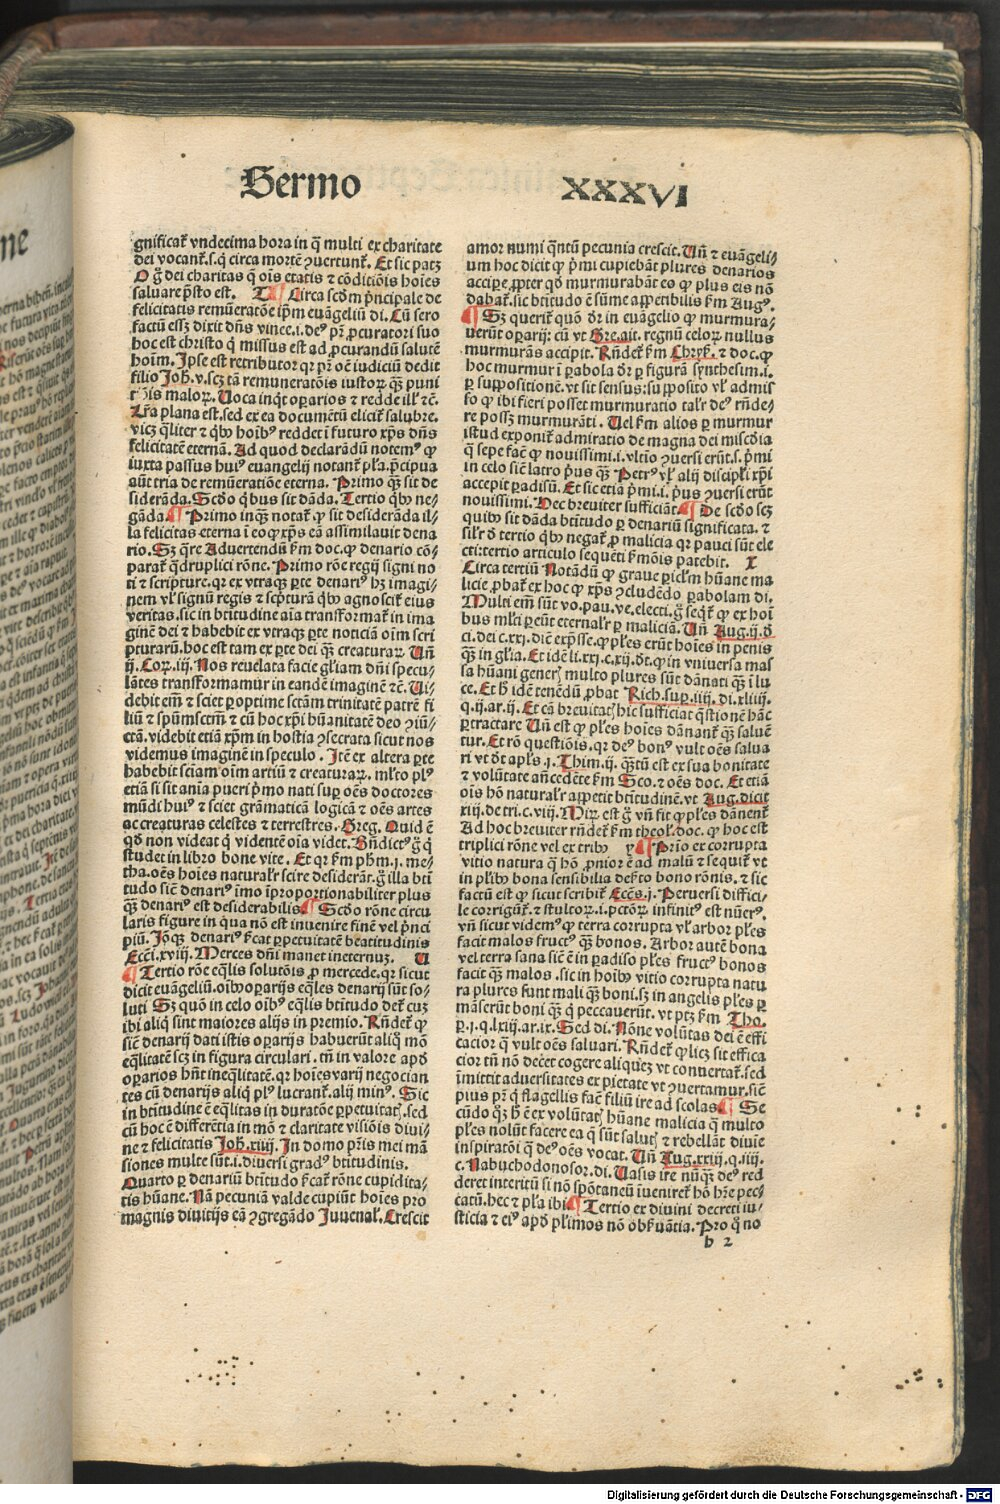 Sermo XXXVI
gnificat᷑ vndecima hora in q̄ multi ex charitate
dei vocant᷑.s.q circa mortē ꝯuertunt᷑. Et sic patꝫ
O g̊ dei charitas q oīs etatis ⁊ cōditiōis hoīes
saluare p̄sto est. T ¶ Circa scd̄m p̄ncipale de
felicitatis remūeratōe ip̄m euāgeliū di. Cū sero
factū essꝫ dixit dn̄s vinee.i.deꝰ pr̄ ꝓcuratori suo
hoc est christo q̇ missus est ad ꝓcurandū salutē
hoīm. Ipse est retributor qꝛ pr̄ oē iudiciū dedit
filio Joh̄.v.scꝫ tā remuneratōis iustoꝝ qꝫ puni
tōis maloꝝ. Uoca inqͭ oꝑarios ⁊ redde ill᷑ ⁊c̄.
Lr̄a plana est.sed ex ea documētū elicit᷑ salubre.
vicꝫ qͣliter ⁊ qͥbꝰ hoībꝰ reddet ī futuro xp̄s dn̄s
felicitatē eternā. Ad quod declarādū notemꝰ ꝙ
iuxta passus huiꝰ euangelij notant᷑ pl̄a.p̄cipua
aūt tria de remūeratiōe eterna. Primo qꝫ sit de
siderāda. Scd̄o qͥbus sit dāda. Tertio qͥbꝰ ne⸗
gāda ¶ Primo inqͣꝫ notat᷑ ꝙ sit desiderāda il⸗
la felicitas eterna ī eo ꝙ xp̄s eā assimilauit dena
rio. Sꝫ qͣre Aduertendū ẜm doc.ꝙ denario cō⸗
parat᷑ q̄druplici rōne. Primo rōe regij signi no
ti ⁊ scripture.qꝛ ex vtraqꝫ ꝑte denariꝰ hꝫ imagi⸗
nem vl᷑ signū regis ⁊ scp̄turā qͥbꝰ agnoscit᷑ eius
veritas.sic in btītudine aīa transformat᷑ in ima
ginē dei ⁊ habebit ex vtraqꝫ ꝑte noticiā oīm scri
pturarū.hoc est tam ex ꝑte dei qꝫ creaturaꝝ. Uñ
ij. Coꝝ.iij. Nos reuelata facie gl̄iam dn̄i specu⸗
lātes transformamur in eandē imaginē ⁊c̄. Ui⸗
debit em̄ ⁊ sciet ꝑoptime sctām trinitatē patrē fi
liū ⁊ spūmsctm̄ ⁊ cū hoc xp̄i hūanitatē deo ꝯiū⸗
ctā.videbit etiā xp̄m in hostia ꝯsecrata sicut nos
videmus imaginē in speculo. Itē ex altera ꝑte
habebit sciam oīm artiū ⁊ creaturaꝝ. ml̄to plꝰ
etiā si sit anīa pueri p̄mo nati suꝑ oēs doctores
mūdi huiꝰ ⁊ sciet grāmaticā logicā ⁊ oēs artes
ac creaturas celestes ⁊ terrestres. Greg. Quid ē
qd̄ non videat q̇ videntē oīa videt. Bn̄dictꝰ g̊ q̇
studet in libro bone vite. Et qꝛ ẜm ph̄m.j. me⸗
tha.oēs hoīes natural᷑r scire desiderāt.g̊ illa btī
tudo siē denariꝰ īmo īproportionabiliter plus
qꝫ denariꝰ est desiderabilis ¶ Scd̄o rōne circu
laris figure in qua nō est inuenire finē vel p̄nci
piū. Jōqꝫ denariꝰ ſ͛cat ꝑpetuitatē beatitudinis
Ecc̄i.xviij. Merces dn̄i manet ineternuꝫ. U
¶ Tertio rōe eq̄lis solutōis ꝓ mercede.qꝛ sicut
dicit euāgeliū.oībꝰ oꝑarijs eq̄les denarij sūt so⸗
luti Sꝫ quō in celo oībꝰ eq̄lis btītudo det᷑ cuꝫ
ibi aliq̇ sint maiores alijs in premio. Rn̄det᷑ ꝙ
siē denarij dati istis oꝑarijs habuerūt aliq̄ mō
eq̄litatē scꝫ in figura circulari. tn̄ in valore apd̄
oꝑarios hn̄t ineq̄litatē.qꝛ hoīes varij negocian
tes cū denarijs aliq̇ plꝰ lucrant᷑.alij minꝰ. Sic
in btītudine ē eq̄litas in duratōe ꝑpetuitatꝭ.sed
cū hoc ē differētia in mō ⁊ claritate visiōis diui⸗
ne ⁊ felicitatis Joh̄.xiiij. In domo pr̄is mei mā
siones multe sūt.i.diuersi gradꝰ btītudinis.
Quarto ꝑ denariū btītudo ſ͛cat᷑ rōne cupidita⸗
tis hūane. Nā pecuniā valde cupiūt hoīes pro
magnis diuitijs eā ꝯgregādo Juuenal᷑. Crescit
amor numi qn̄tū pecunia crescit. Uñ ⁊ euāgeli⸗
um hoc dicit ꝙ p̄mi cupiebāt plures denarios
accipe.ꝓpter qd̄ murmurabāt eo ꝙ plus eis nō
dabat᷑.sic btītudo ē sūme appetibilis ẜm Augꝰ.
¶ Sꝫ querit᷑ quō dr̄ in euāgelio ꝙ murmura⸗
uerūt oꝑarij: cū vt Gre.ait. regnū celoꝝ nullus
murmurās accipit. Rn̄det᷑ ẜm Chryẜ. ⁊ doc.ꝙ
hoc murmur ī ꝑabola dr̄ ꝑ figurā synthesim.i.
ꝑ suppositionē.vt sit sensus:su pposito vl᷑ admis
so ꝙ ibi fieri posset murmuratio tal᷑r deꝰ rn̄de⸗
re possꝫ murmurāti. Uel ẜm alios ꝑ murmur
istud exponit᷑ admiratio de magna dei miscd̄ia
q̄ sepe fac̄ ꝙ nouissimi.i.vltīo ꝯuersi erūt.s. p̄mi
in celo siē latro p̄us qꝫ Petrꝰ vl᷑ alij discipl̄i xp̄i
accepit ꝑadisū. Et sic etiā p̄mi.i. p̄us ꝯuersi erūt
nouissimi. Hec breuiter sufficiāt ¶ De scd̄o scꝫ
quibꝰ sit dāda btītudo ꝑ denariū significata. ⁊
sil᷑r d̄ tertio qͥbꝰ negat᷑ ꝓ malicia qꝛ pauci sūt ele
cti:tertio articulo sequēti ẜmōis patebit. X
Circa tertiū Notādū ꝙ graue ꝑiclm̄ hūane ma
licie ꝓbat᷑ ex hoc ꝙ xp̄s ꝯcludēdo ꝑabolam di.
Multi em̄ sūt vo.pau.ve.electi.g̊ seqͭ᷑ ꝙ ex hoī
bus ml̄ti ꝑeūt eternal᷑r ꝑ maliciā. Uñ Aug.ij.d̄
ci.dei c.xxj.dic̄ exp̄sse.ꝙ pl̄es erūt hoīes in penis
qꝫ in gl̄ia. Et idē li.xxj.c.xij.dt̄.ꝙ in vniuersa mas
sa hūani generꝭ multo plures sūt dānati qꝫ ī lu
ce. Et h̄ idē tenēdū ꝓbat Rich.suꝑ.iiij.di.xliiij.
q.ij.ar.ij. Et cā breuitatꝭ hic sufficiat q̄stionē hāc
ꝑtractare Uñ est ꝙ pl̄es hoīes dānant᷑ qꝫ saluē
tur. Et rō questiōis.qꝛ deꝰ bonꝰ vult oēs salua
ri vt dt̄ apl̄s.j. Thim.ij. qꝫtū est ex sua bonitate
⁊ volūtate añcedēte ẜm Sco. ⁊ oēs doc. Et etiā
oīs hō natural᷑r appetit btītudinē.vt Aug.dicit
xiij.de tri.c.viij. Miꝝ est g̊ vñ fit ꝙ pl̄es dānent᷑
Ad hoc breuiter rn̄det᷑ ẜm theol᷑.doc. ꝙ hoc est
triplici rōne vel ex tribꝰ y ¶ Prīo ex corrupta
vitio natura q̄ hō ꝓnior ē ad malū ⁊ sequit᷑ vt
in pl̄ibꝰ bona sensibilia dełcto bono rōnis. ⁊ sic
factū est ꝙ sicut scribit᷑ Ecc̄s.j. Peruersi diffici⸗
le corrigūt᷑. ⁊ stultoꝝ.i.pctōꝝ infinitꝰ est nūerꝰ.
vñ sicut videmꝰ ꝙ terra corrupta vl᷑ arbor pl̄es
facit malos fructꝰ qꝫ bonos. Arbor autē bona
vel terra sana siē ē in ꝑadiso pl̄es fructꝰ bonos
facit qꝫ malos.sic in hoībꝰ vitio corrupta natu
ra plures sunt mali qꝫ boni.sꝫ in angelis pl̄es ꝑ
māserūt boni qꝫ q̇ peccauerūt.vt ptꝫ ẜm Tho.
ꝑ.j.q.lxiij.ar.ix. Sed di. Nōne volūtas dei ē effi
cacior q̄ vult oēs saluari. Rn̄det᷑ ꝙ licꝫ sit effica
cior tn̄ nō decet cogere aliqueꝫ vt conuertat᷑.sed
īmittit aduersitates ex pietate vt ꝯuertamur.siē
pius pr̄ q̇ flagellis fac̄ filiū ire ad scolas ¶ Se
cūdo qꝫ h̄ ē ex volūtatꝭ hūane malicia q̄ multo
pl̄es nolūt facere ea q̄ sūt salutꝭ ⁊ rebellāt diuīe
inspiratōi q̄ deꝰ oēs vocat. Uñ Aug.xxiij.q.iiij.
c. Nabuchodonosor.di. Uasis ire nūqꝫ deꝰ red
deret interitū si nō spōtaneū īueniret᷑ hō hr̄e pec⸗
catū.hec ⁊ pl̄a ibi ¶ Tertio ex diuini decreti iu⸗
sticia ⁊ eiꝰ apd̄ pl̄imos nō obẜuātia. Pro q̄ no
b 2
Digitalisierung gefördert durch die Deutsche Forschungsgemeinschaft - DFG